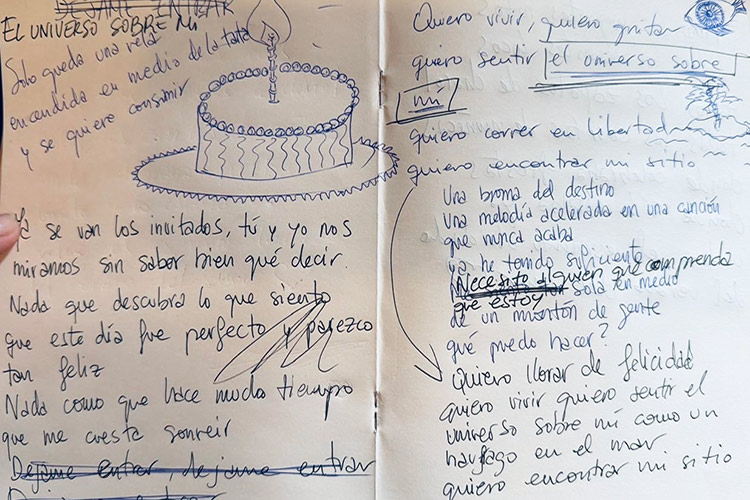 DEJAME ENTRAR
EL UNIVERSO SOBRE MI
Solo queda una vela
encendida en medio de la tarta
y se quiere consumir
Ya se van los invitados, tú y yo nos
miramos sin saber bien qué decir.
Nada que descubra lo que siento
que este día fue perfecto y parezco
tan feliz
Nada como que hace mucho tiempo
que me cuesta sonreir
Dejame entrar, dejame entrar
Quiero vivir, quiero gritar
quiero sentir el universo sobre
mí
quiero correr en libertad
quiero encontrar mi sitio
Una broma del destino
Una melodía acelerada en una canción
que nunca acaba
ya he tenido suficiente
Necesito alguien que comprenda
que estoy sola en medio
de un montón de gente
qué puedo hacer?
Quiero llorar de felicidad
quiero vivir quiero sentir el
universo sobre mí como un
naufrago en el mar
quiero encontrar mi sitio